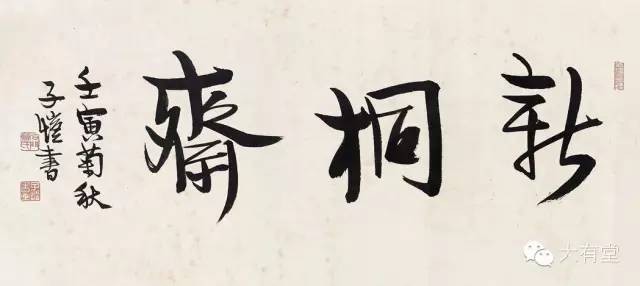 新桐齋
壬寅菊秋
子愷書
大有堂